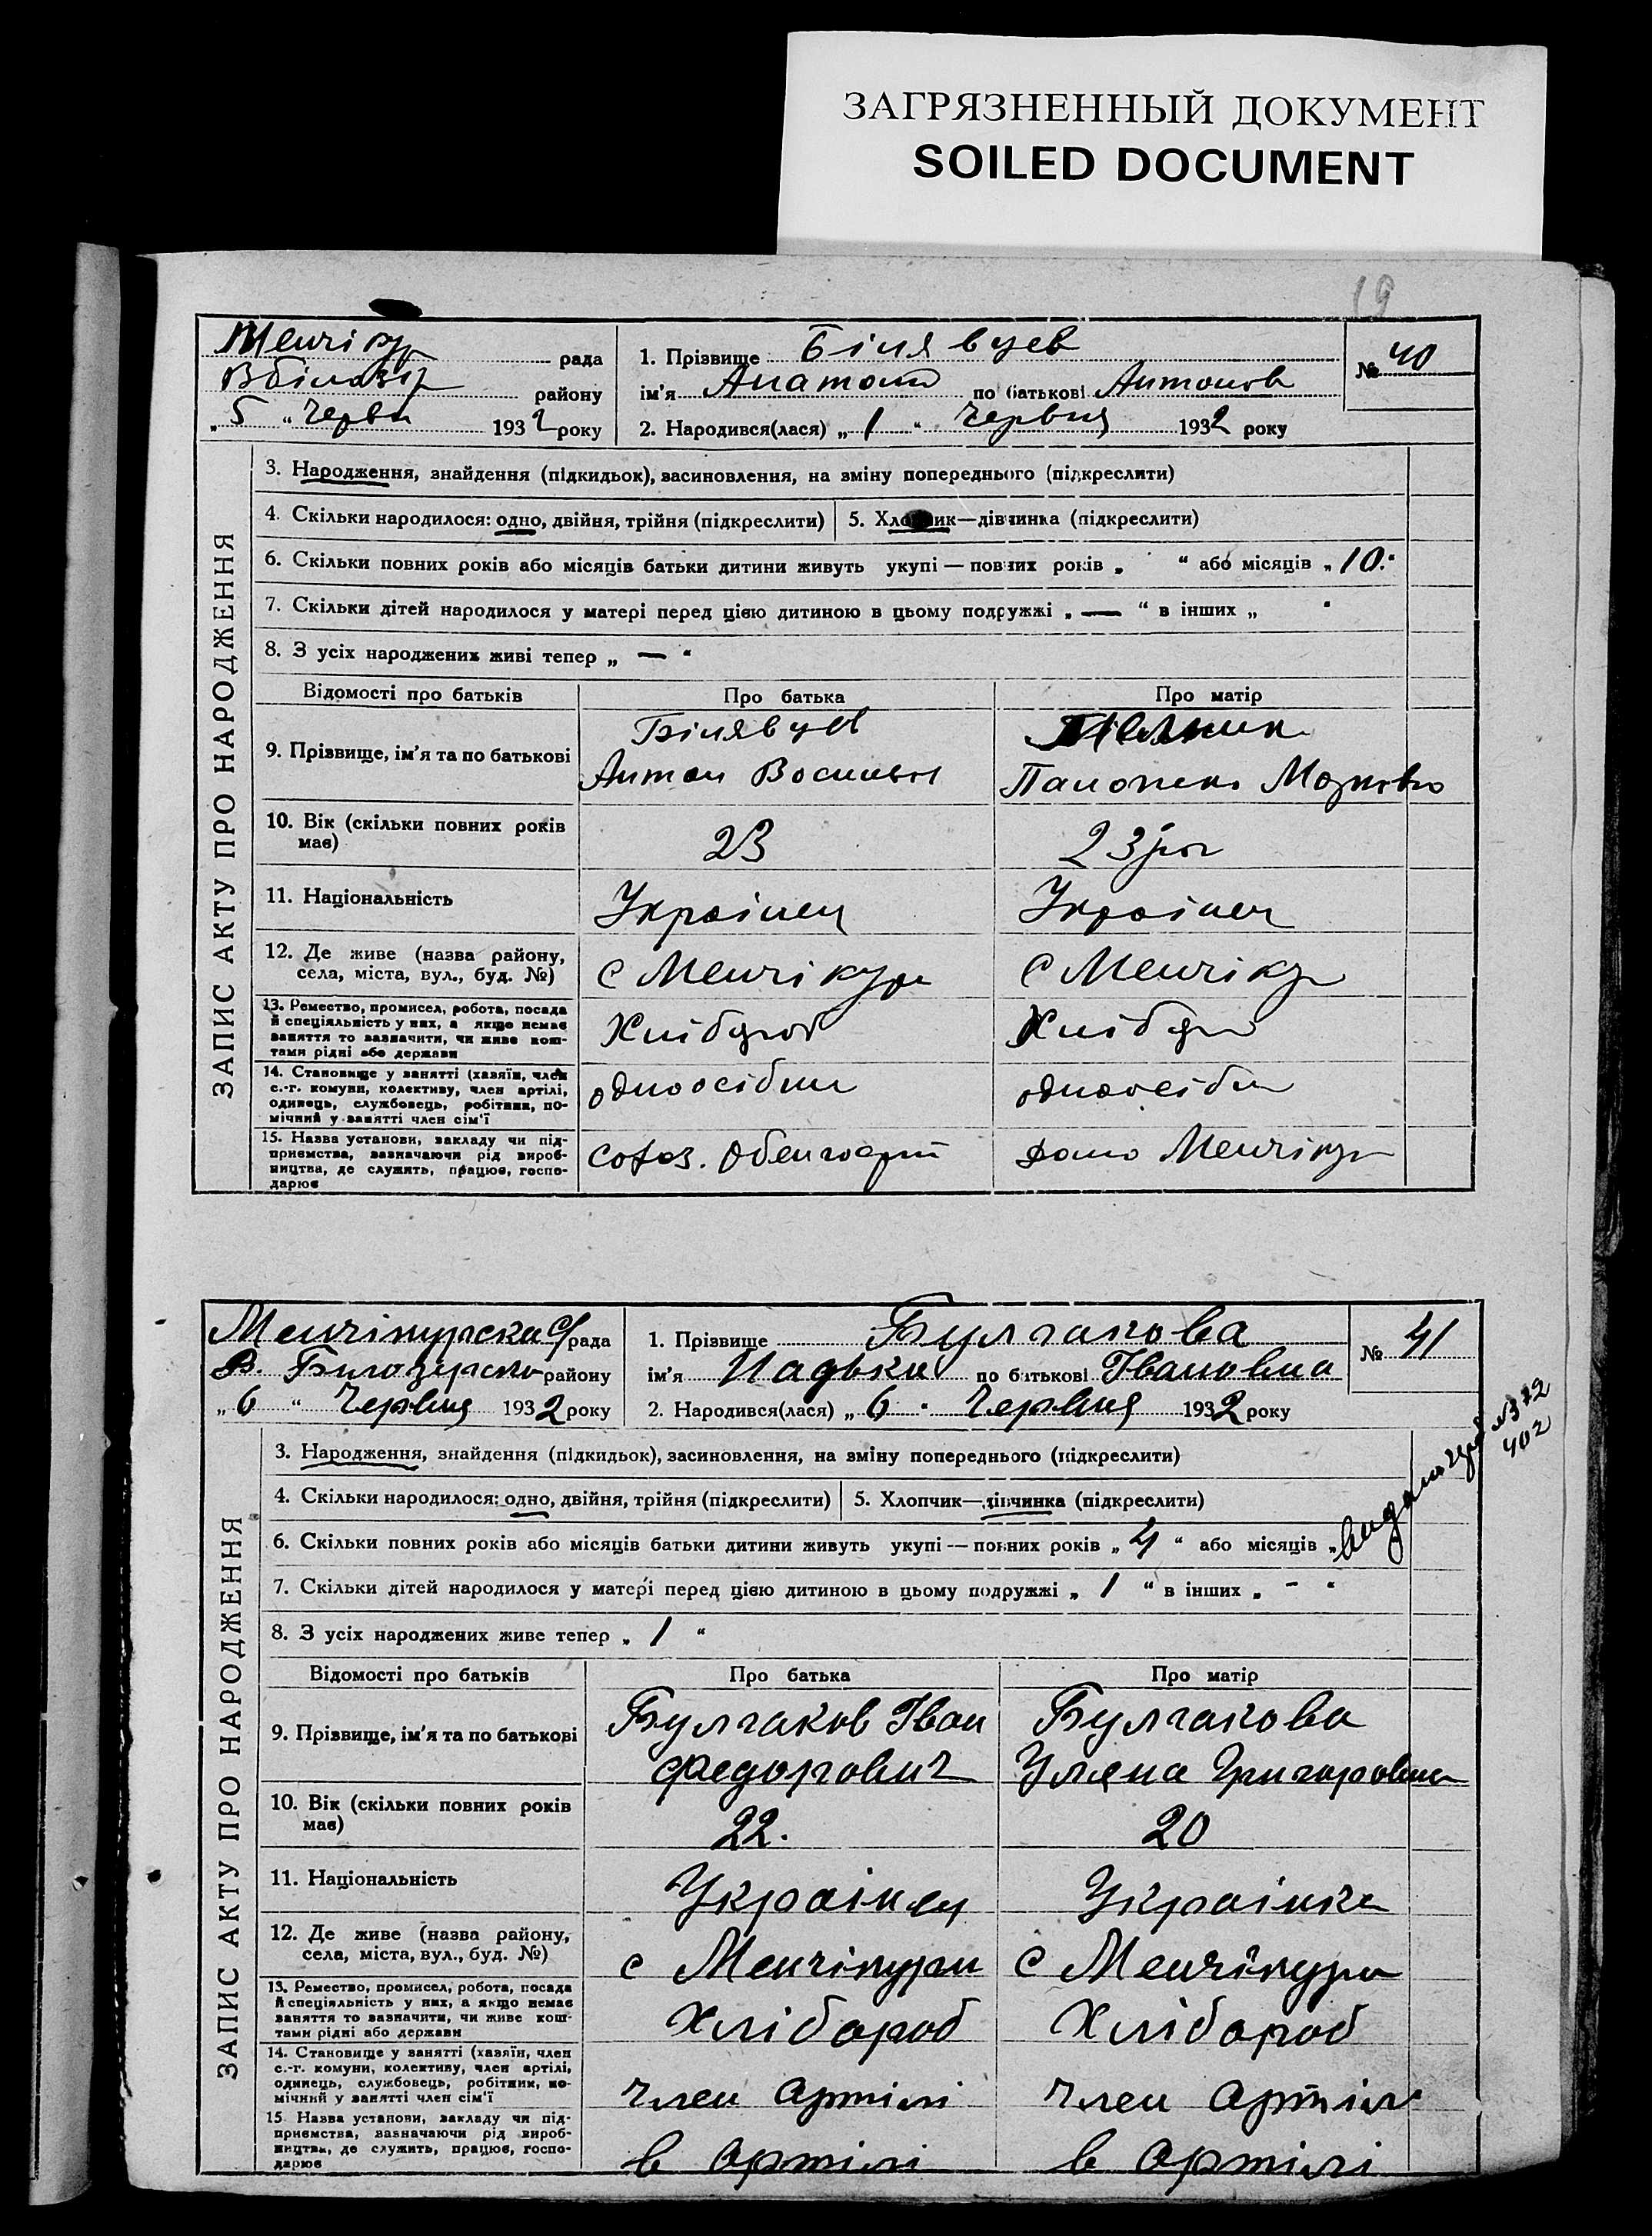 ЗАГРЯЗНЕННЫЙ ДОКУМЕНТ
SOILED DOCUMENT
19
Менчікур рада
Вбілозір району
„5“ Червн 1932 року
1. Прізвище Білявцев
ім'я Анатолій по батькові Антонов
2. Народився(лася) „1“ Червня 1932 року
№ 40
ЗАПИС АКТУ ПРО НАРОДЖЕННЯ
3. Народження, знайдення (підкидьок), засиновлення, на зміну попереднього (підкреслити)
4. Скільки народилося: одно, двійня, трійня (підкреслити) 5. Хлопчик—дівчинка (підкреслити)
6. Скільки повних років або місяців батьки дитини живуть укупі — повних років „ “ або місяців „10.“
7. Скільки дітей народилося у матері перед цією дитиною в цьому подружжі „—“ в інших „ “
8. З усіх народжених живі тепер „—“
Відомості про батьків Про батька Про матір
9. Прізвище, ім'я та по батькові
Білявцев
Антон
10. Вік (скільки повних років має) 23 23
11. Національність Українец Українец
12. Де живе (назва району, села, міста, вул., буд. №) с Менчікур с Менчікур
13. Ремество, промисел, робота, посада
й спеціяльність у них, а якщо немає
заняття то зазначити, чи живе кош-
тами рідні або держави
14. Становище у занятті (хазяїн, член
с.-г. комуни, колективу, член артілі,
одинець, службовець, робітник, по-
мічний у занятті член сім'ї
одноосібни одноосібн
15. Назва установи, закладу чи під-
приємства, зазначаючи рід вироб-
ництва, де служить, працює, госпо-
дарює
Менчікур
Менчікурска с/рада
В. Білозірско району
„6“ Червня 1932 року
1. Прізвище Булгакова
ім'я Надька по батькові Івановна
2. Народився(лася) „6“ Червня 1932 року
№ 41
402
ЗАПИС АКТУ ПРО НАРОДЖЕННЯ
3. Народження, знайдення (підкидьок), засиновлення, на зміну попереднього (підкреслити)
4. Скільки народилося: одно, двійня, трійня (підкреслити) 5. Хлопчик—дівчинка (підкреслити)
6. Скільки повних років або місяців батьки дитини живуть укупі — повних років „4“ або місяців „
7. Скільки дітей народилося у матері перед цією дитиною в цьому подружжі „1“ в інших „-“
8. З усіх народжених живе тепер „1“
Відомості про батьків Про батька Про матір
9. Прізвище, ім'я та по батькові
Булгаков Іван Булгакова
Федорович Уляна Григоровна
10. Вік (скільки повних років має) 22. 20
11. Національність Українец Українка
12. Де живе (назва району, села, міста, вул., буд. №) с Менчікури с Менчікури
13. Ремество, промисел, робота, посада
й спеціяльність у них, а якщо немає
заняття то зазначити, чи живе кош-
тами рідні або держави
Хлібороб Хлібороб
14. Становище у занятті (хазяїн, член
с.-г. комуни, колективу, член артілі,
одинець, службовець, робітник, по-
мічний у занятті член сім'ї
член артілі член артілі
15. Назва установи, закладу чи під-
приємства, зазначаючи рід вироб-
ництва, де служить, працює, госпо-
дарює
в артілі в артілі